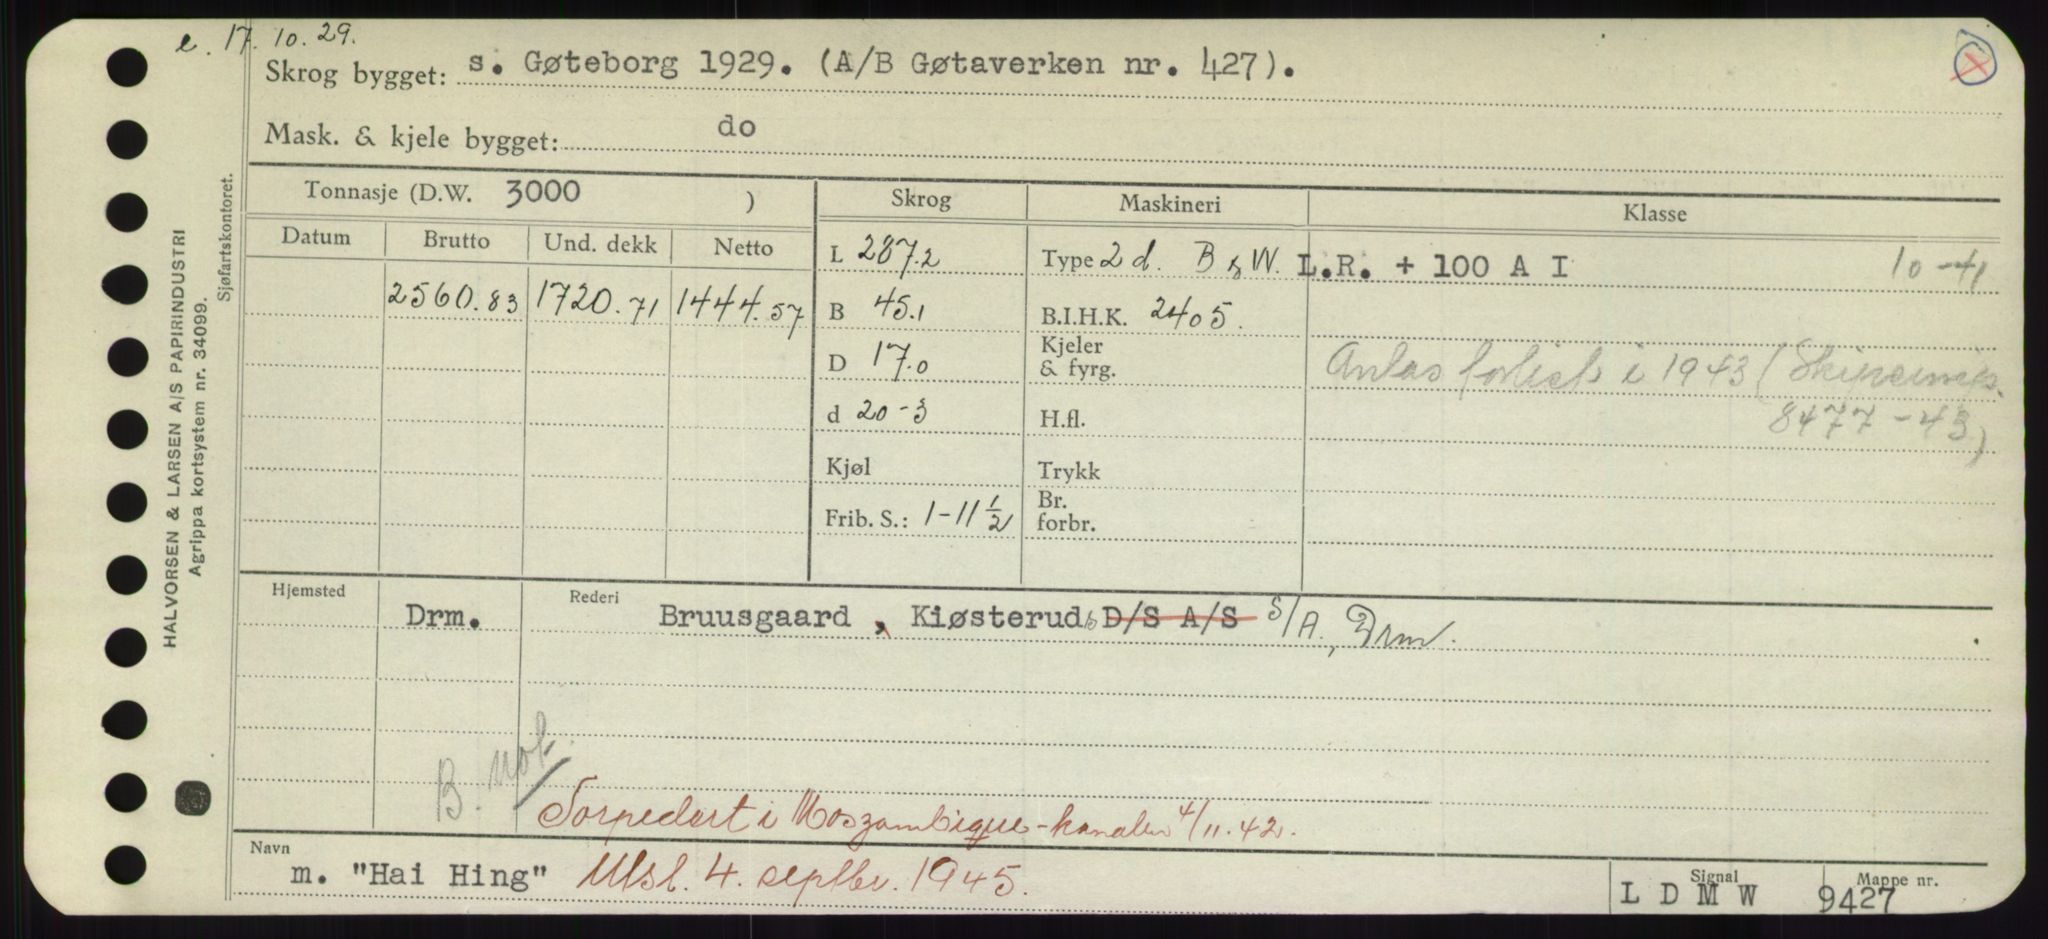 e. 17.10.29.
Skrog bygget: s. Gøteborg 1929. (A/B Gøtaverken nr. 427).
Mask. & kjele bygget: do
Tonnasje (D.W. 3000 ) Skrog Maskineri Klasse
Datum Brutto Und. dekk Netto
L 287.2 Type 2 d. B & W. L.R. + 100 A I 10-41
2560.83 1720.71 1444.57 B 45.1 B.I.H.K. 2405.
D 17.0 Kjeler & fyrg. Antas forlist i 1943 (
d 20-3 H.fl. 8477-43)
Kjøl Trykk
Frib. S.: 1-11 1/2 Br. forbr.
Hjemsted Drm. Rederi Bruusgaard, Kiøsterud D/S A/S S/A, Drm.
B. not.
Torpedert i Moszambique-kanalen 4/11.42.
Navn m. "Hai Hing" Utsl. 4. septbr. 1945. Signal L D M W Mappe nr. 9427
HALVORSEN & LARSEN A/S PAPIRINDUSTRI
Agrippa kortsystem nr. 34099.
Sjøfartskontoret.